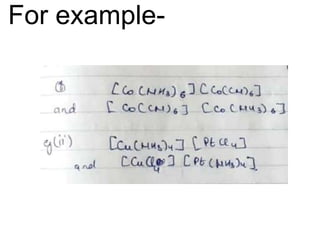 For example-
(i) [Co(NH3)6] [Co(CN)6]
and [Co(CN)6] [Co(NH3)6]
(ii) [Cu(NH3)4] [PtCl4]
and [CuCl4] [Pt(NH3)4].